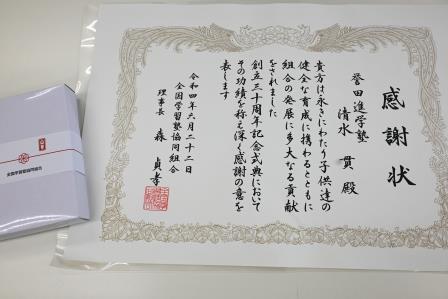 感謝状
誉田進学塾
清水 貫 殿
貴方は永きにわたり子供達の
健全な育成に携わるとともに
組合の発展に多大なる貢献
をされました
創立三十周年記念式典において
その功績を称え深く感謝の意を
表します
令和四年六月二十二日
全国学習塾協同組合
理事長 森 貞孝
全国学習塾協同組合